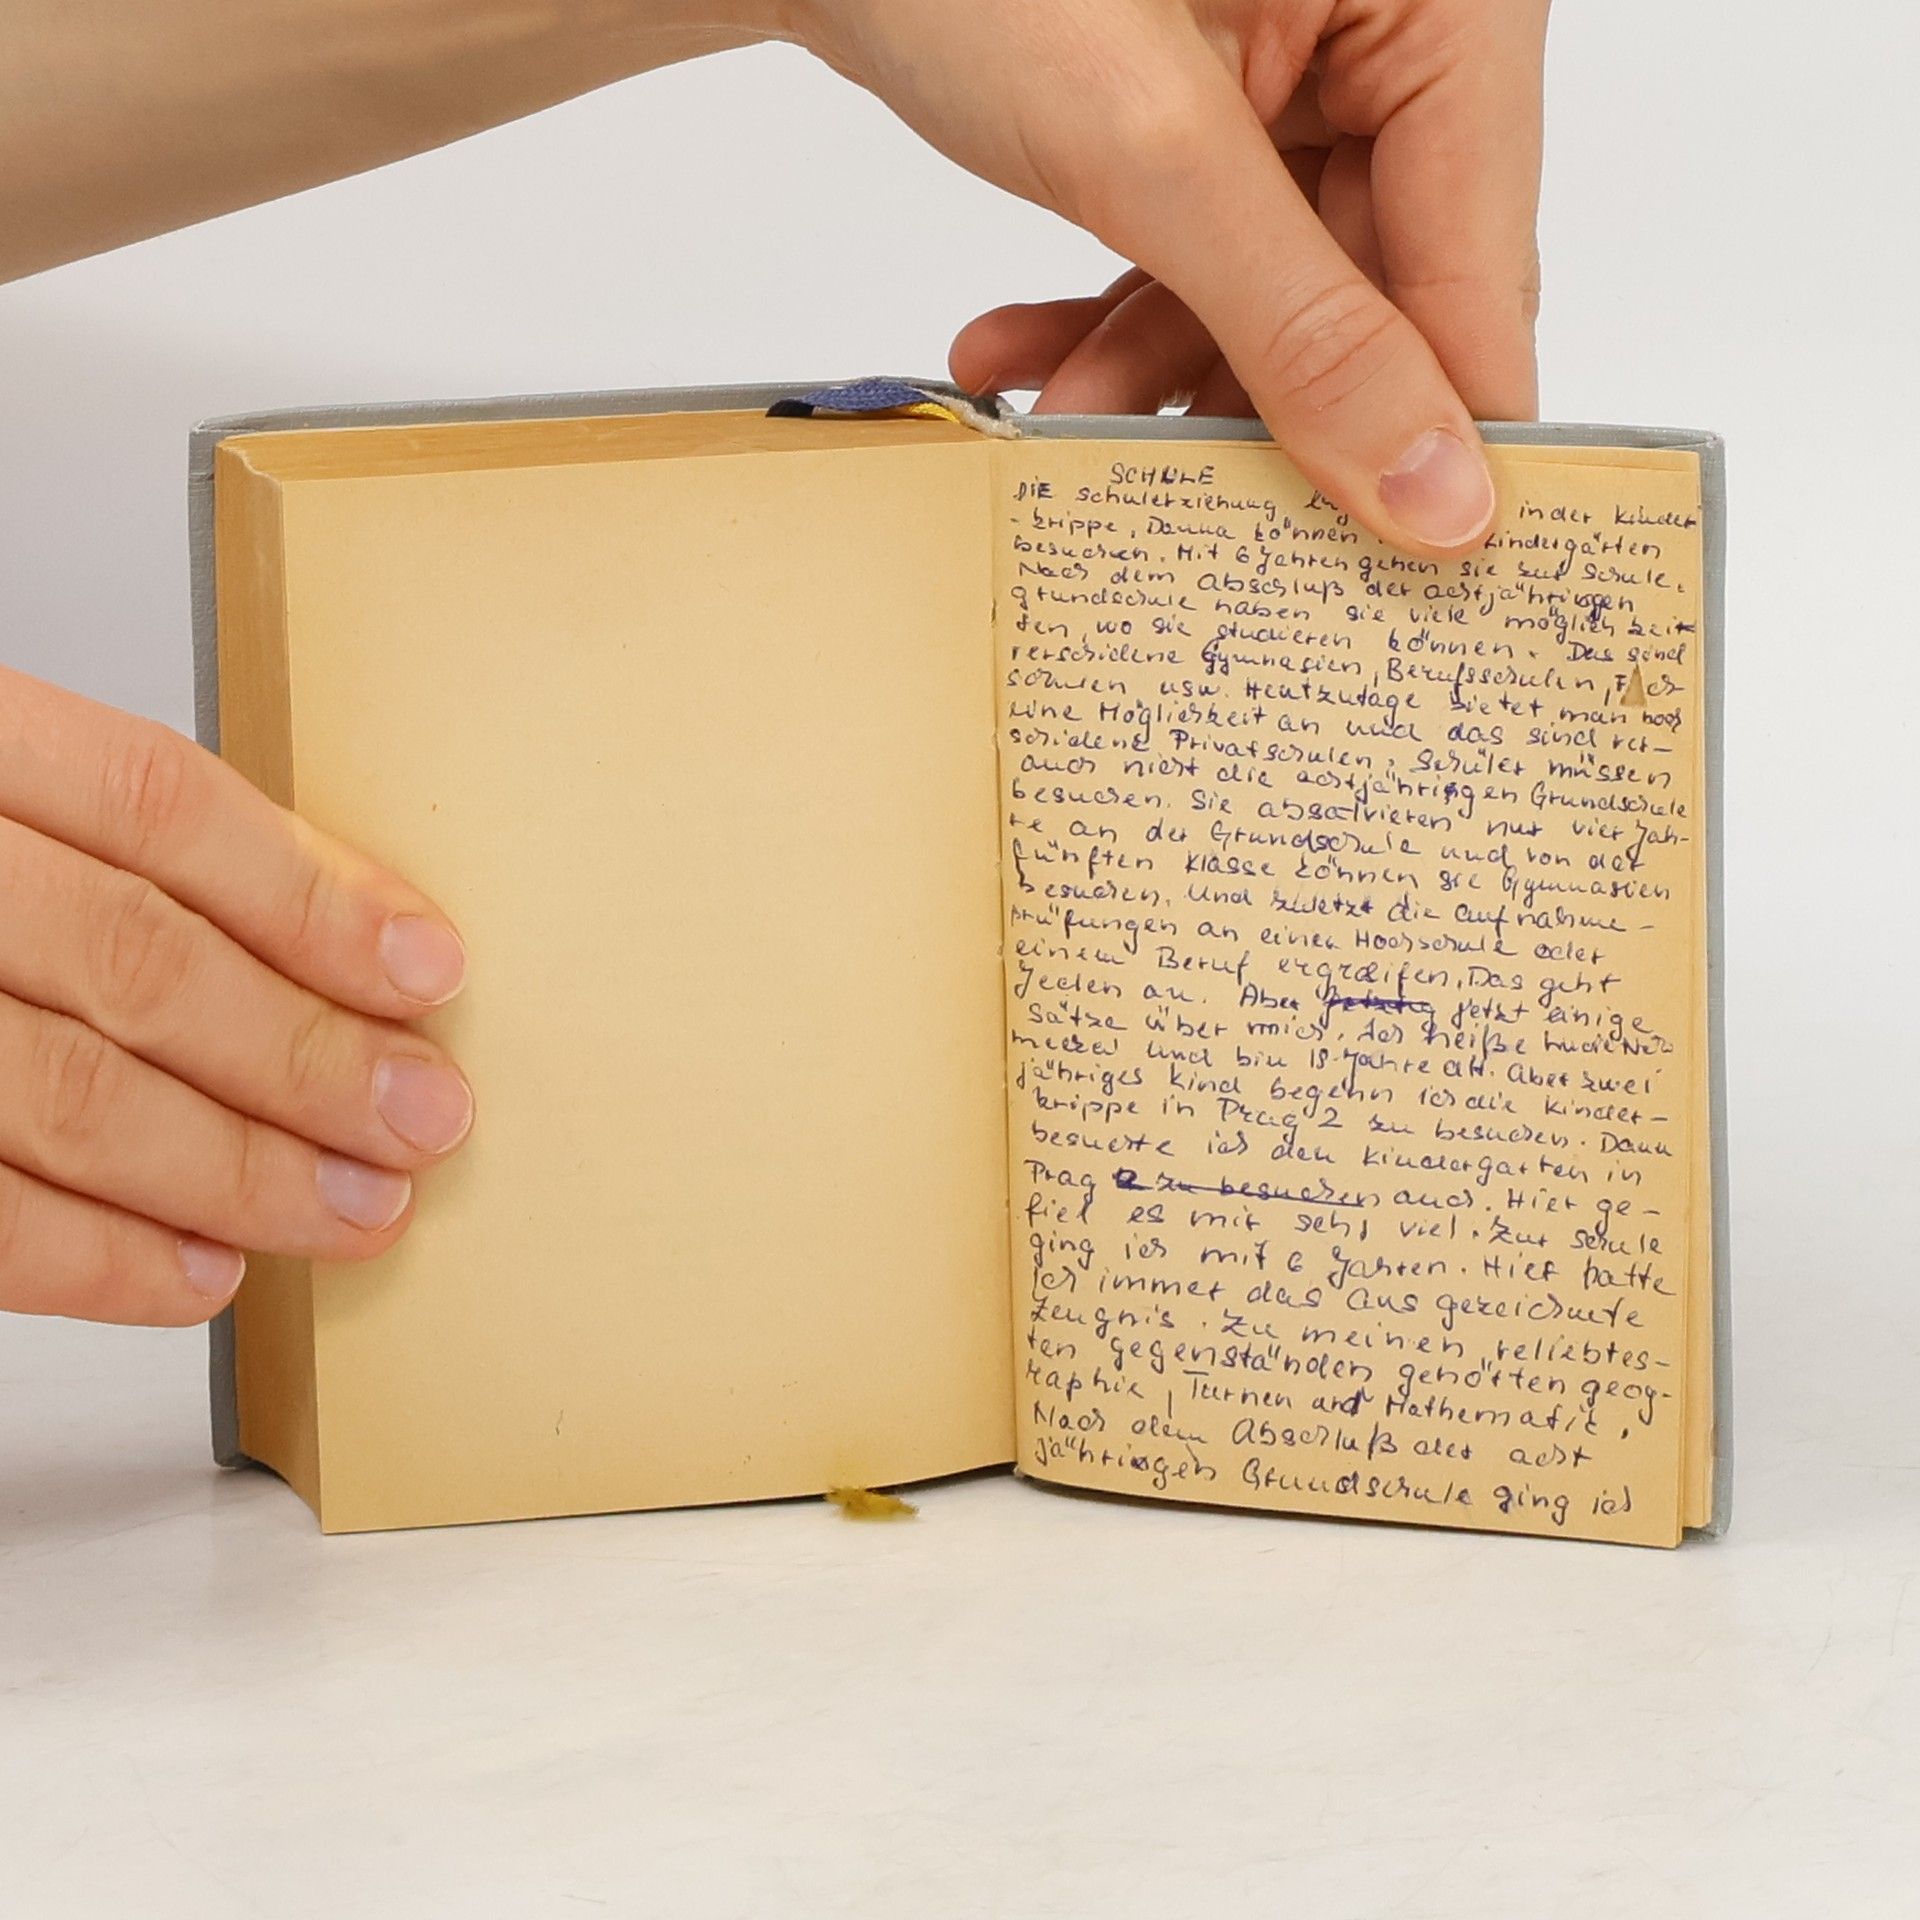 SCHULE
DIE schulerziehung in der Kinder
- krippe, Danna können Kindergärten
besuchen. Mit 6 Jahren gehen sie zur Schule.
Nach dem Abschluß der achtjähringen
grundschule haben sie viele möglich keit
ten, wo sie studieren können. Das sind
verschidene Gymnasien, Berufsschulen, Fach
schulen usw. Heutzutage bietet man noch
eine Möglichkeit an und das sind ver-
schidene Privatschulen. Schüler müssen
auch nicht die achtjähringen Grundschule
besuchen. Sie absolvieren nur vier Jah-
re an der Grundschule und von der
fünften Klasse können sie Gymnasien
besuchen. Und zuletzt die aufnahme-
prüfungen an einer Hochschule oder
einem Beruf ergreifen. Das geht
Jeden an. Aber jetzt einige
Sätze über mich. Ich heiße
und bin 18 Jahre alt. Aber zwei
jähriges Kind begenn ich die Kinder-
krippe in Prag 2 zu besuchen. Dann
besuchte ich den Kindergarten in
Prag 2 zu besuchen auch. Hier ge-
fiel es mir sehr viel. Zur Schule
ging ich mit 6 Jahren. Hier hatte
ich immer das aus gezeichnete
Zeugnis. Zu meinen reliebtes-
ten gegenständen gehörten geog-
raphie, Turnen and Mathematic.
Nach dem Abschluß der acht
jähringen Grundschule ging ich